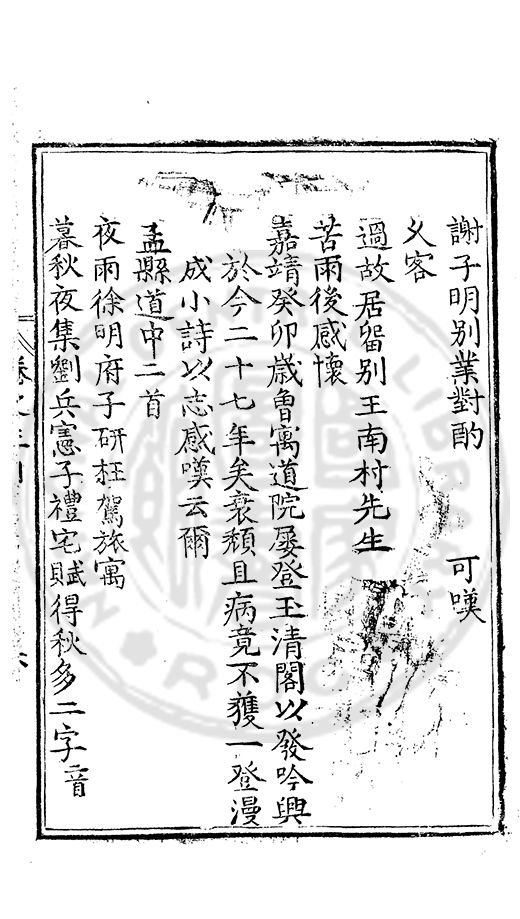 謝子明別業對酌　可嘆
乂客
過故居留別王南村先生
苦雨後感懷
嘉靖癸卯歲魯寓道院屡登玉清閣以發吟興
於今二十七年矣衰頹且病竟不獲一登漫
成小詩以志感嘆云爾
孟縣道中二首
夜雨徐明府子研枉駕旅寓
暮秋夜集劉兵憲子禮宅賦得秋多二字音